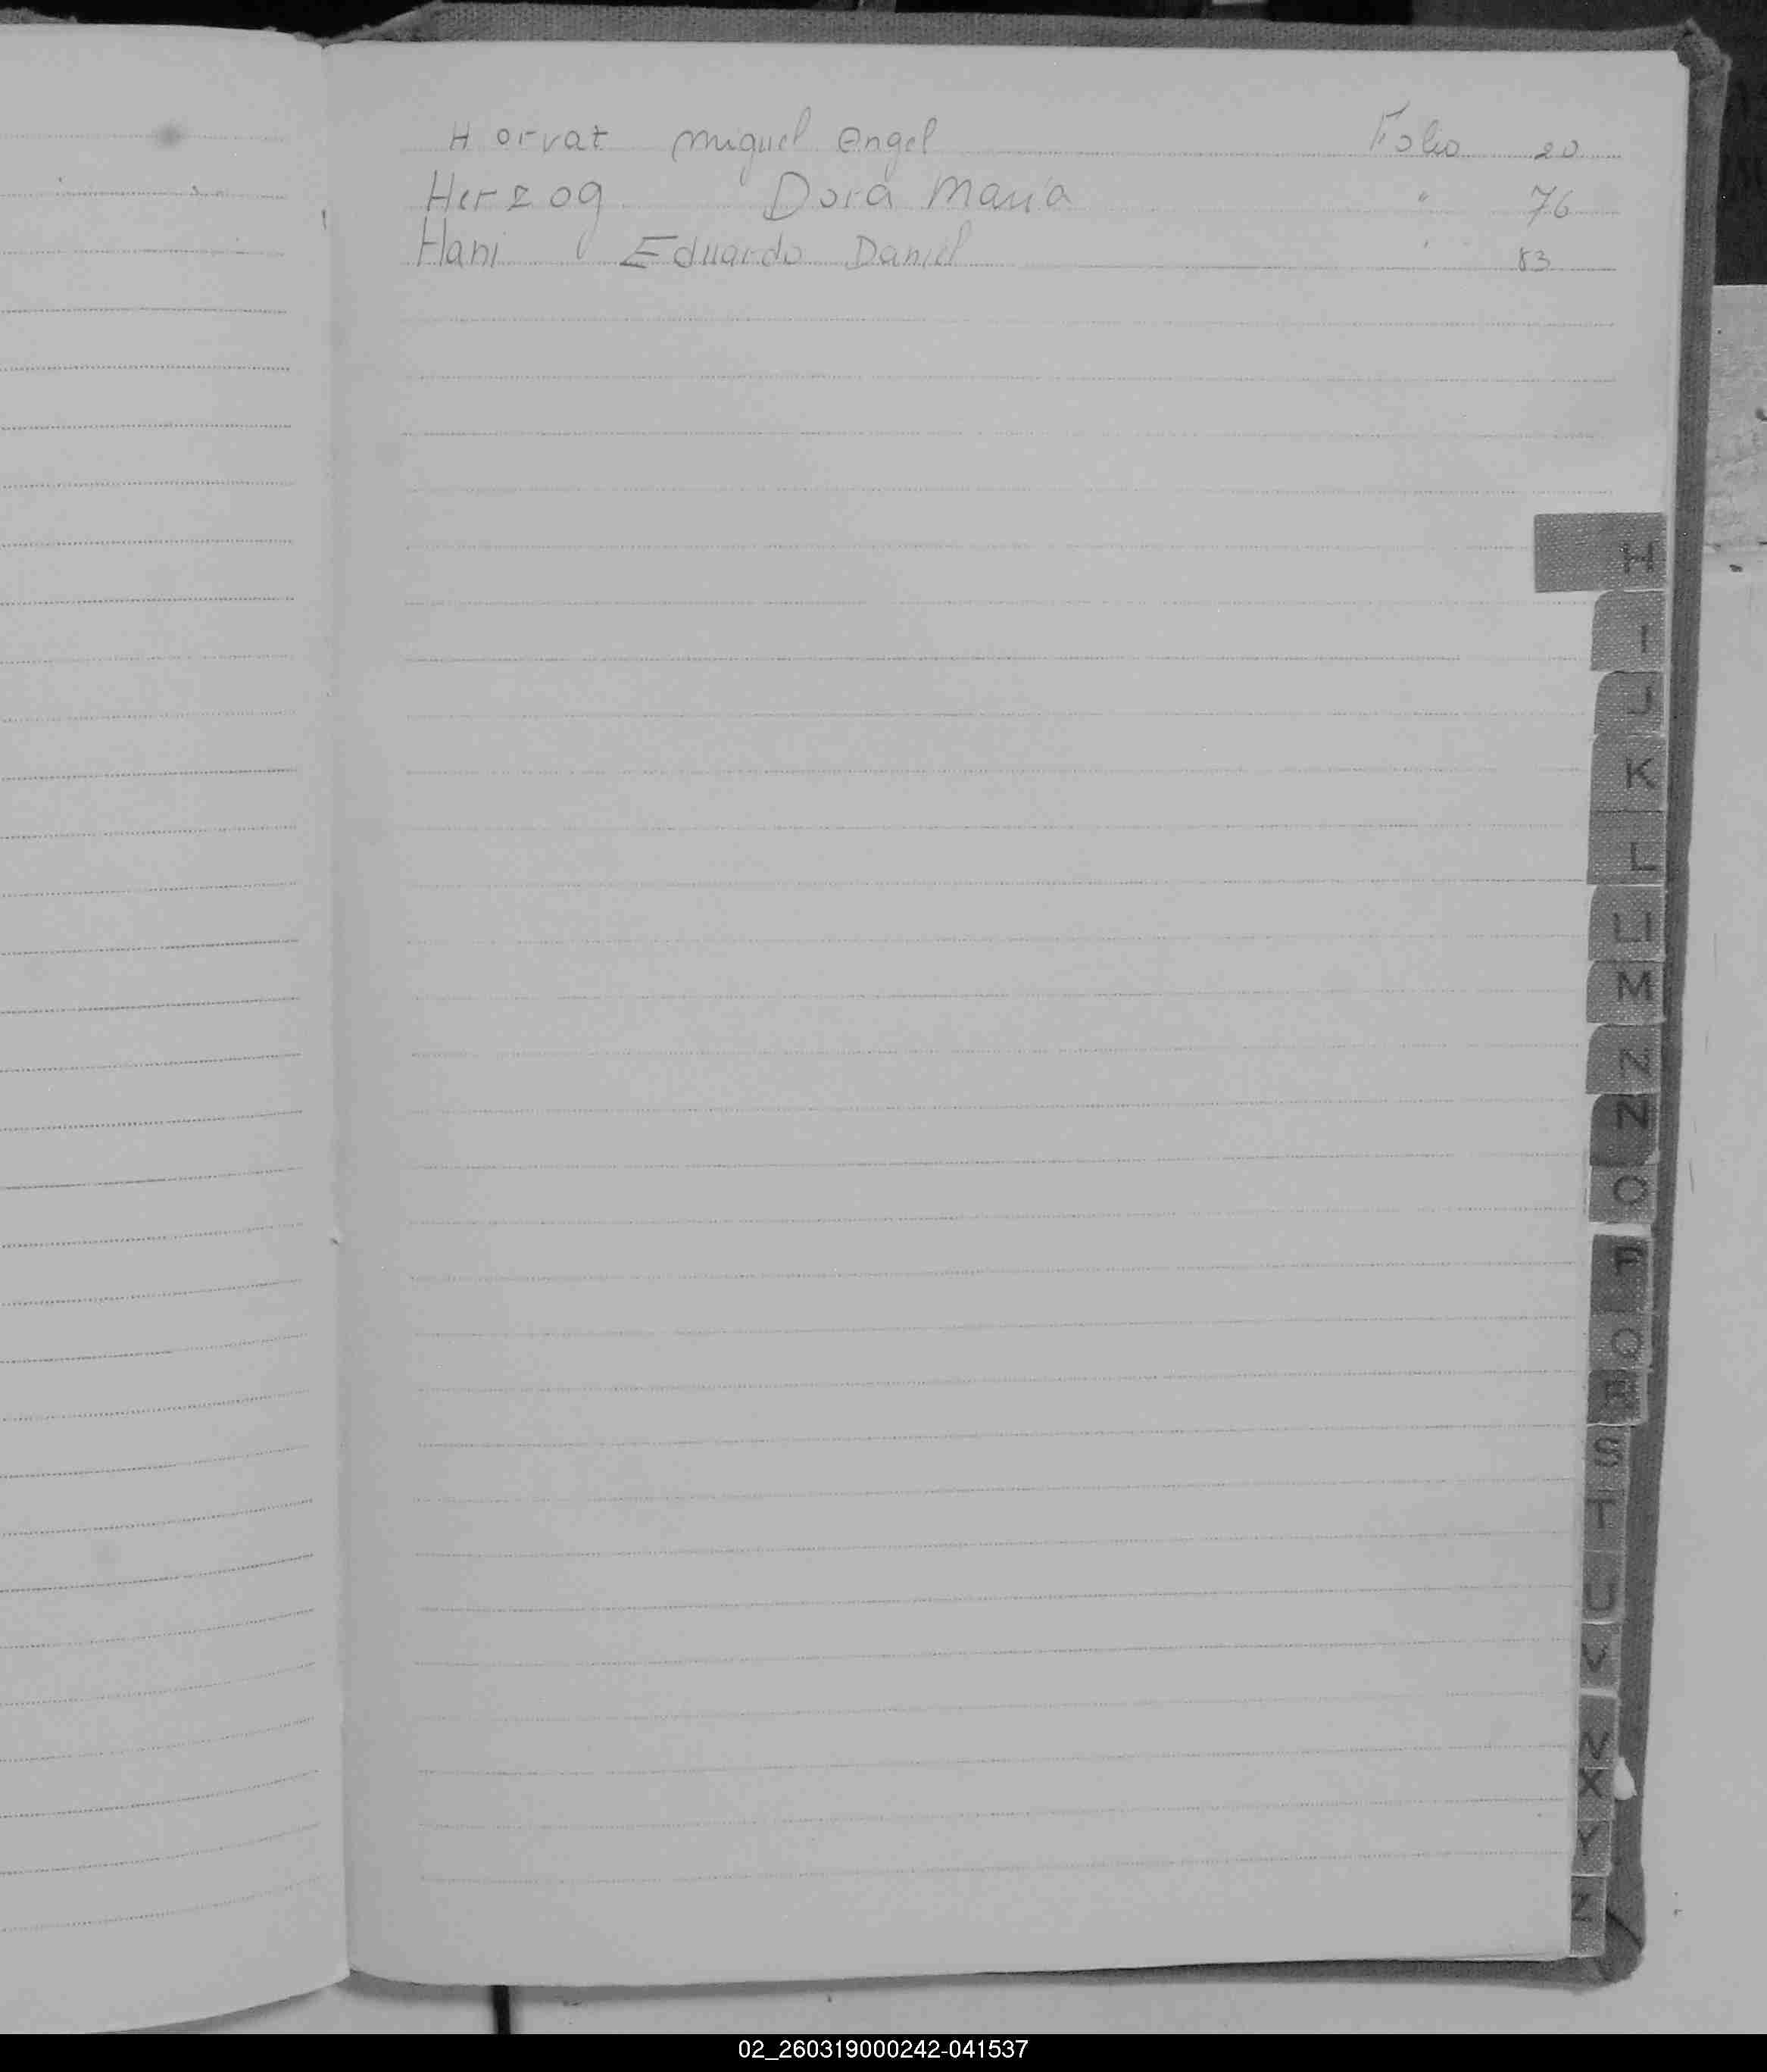 Horvat Miguel Engel Folio 20
Herzog Dora Maria " 76
Hani Eduardo Daniel " 83
H
I
J
K
L
Ll
M
N
Ñ
O
P
Q
R
S
T
U
V
X
Y
Z
02_260319000242-041537